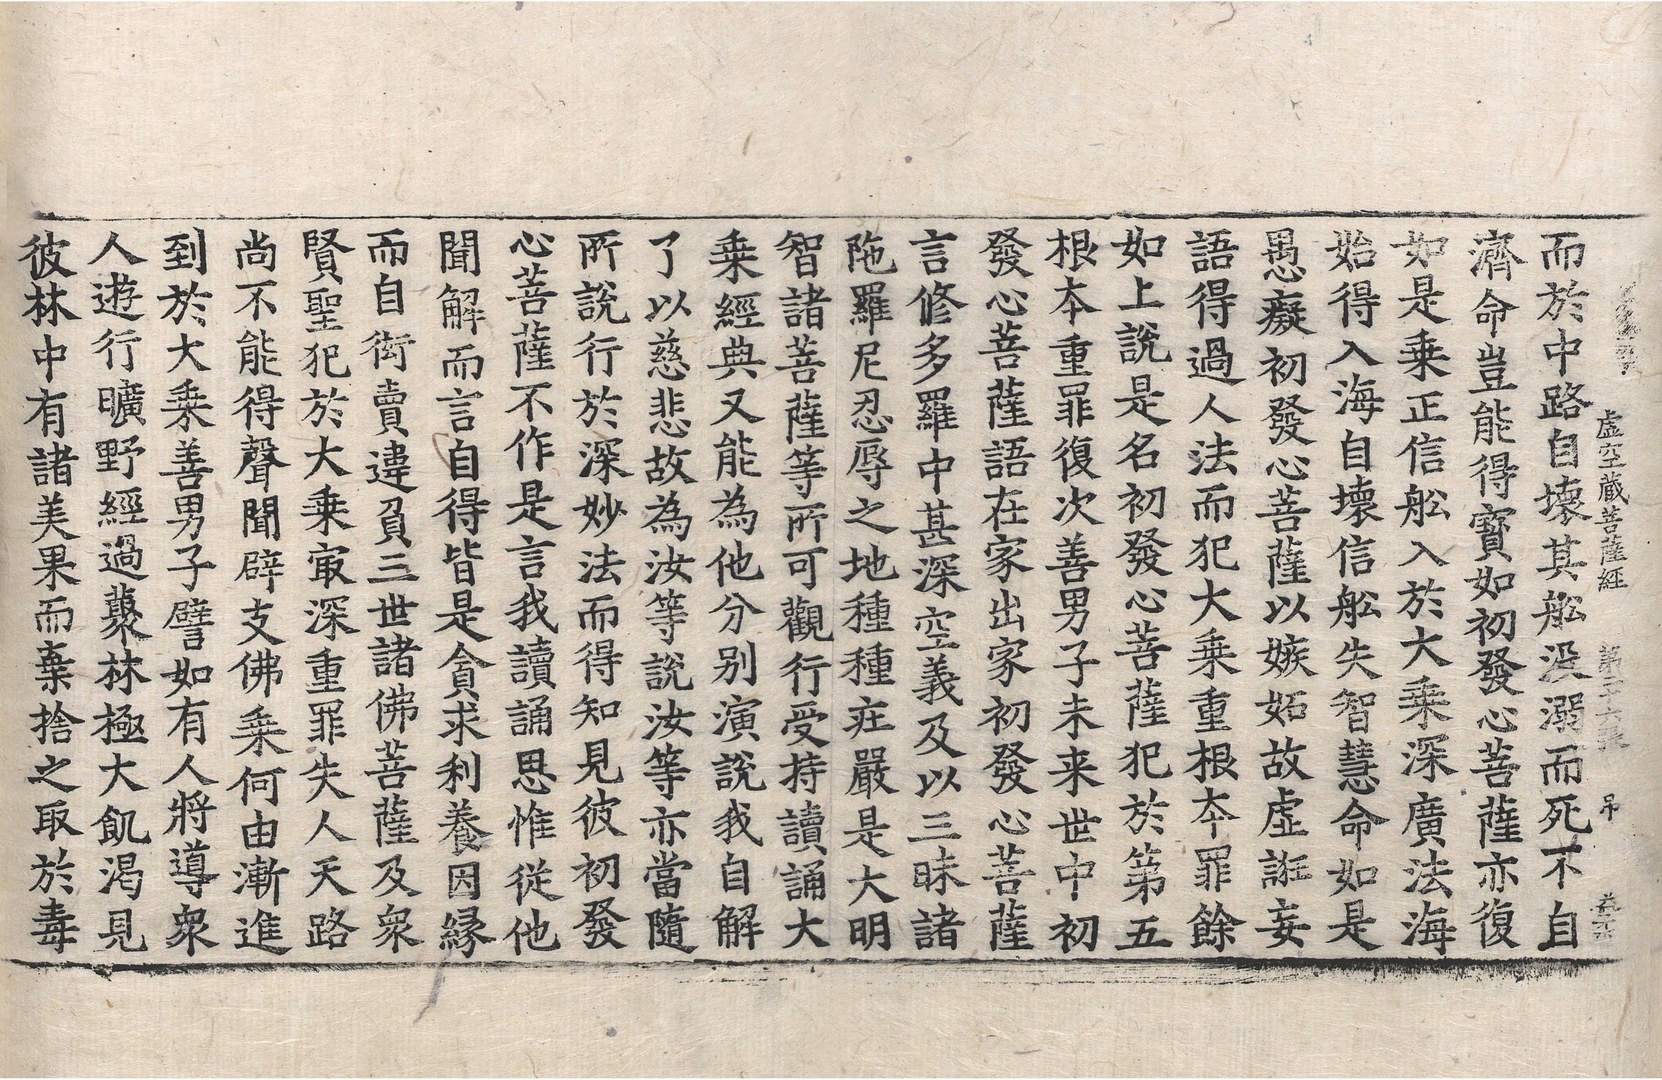 虛空藏菩薩經 第二十六張 吊
而於中路自壞其舩没溺而死不自
濟命豈能得寳如初發心菩薩亦復
如是乗正信舩入於大乗深廣法海
始得入海自壞信舩失智慧命如是
愚癡初發心菩薩以嫉妬故虛誑妄
語得過人法而犯大乗重根夲罪餘
如上說是名初發心菩薩犯於第五
根夲重罪復次善男子未来世中初
發心菩薩語在家出家初發心菩薩
言修多羅中甚深空義及以三昧諸
陁羅尼忍辱之地種種疘嚴是大明
智諸菩薩等所可觀行受持讀誦大
乗經典又能為他分别演說我自解
了以慈悲故為汝等說汝等亦當隨
所說行於深妙法而得知見彼初發
心菩薩不作是言我讀誦思惟從他
聞解而言自得皆是貪求利養因縁
而自衒賣違負三世諸佛菩薩及衆
賢聖犯於大乗㝡深重罪失人天路
尚不能得聲聞辟支佛乗何由漸進
到於大乗善男子譬如有人將導衆
人遊行曠野經過藂林極大飢渴見
彼林中有諸美果而棄捨之取於毒